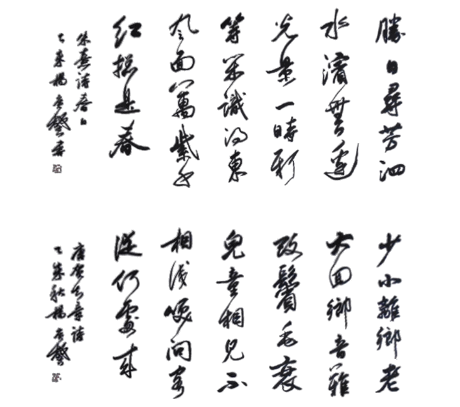 勝日尋芳泗
水濱無邊
光景一時新
等閑識得東
風面萬紫千
紅總是春
朱熹詩春日
乙未楊广馨書
少小離鄉老
大回鄉音難
改鬢毛衰
兒童相見不
相識笑問客
從何處來
唐賀知章詩
乙未秋楊广馨